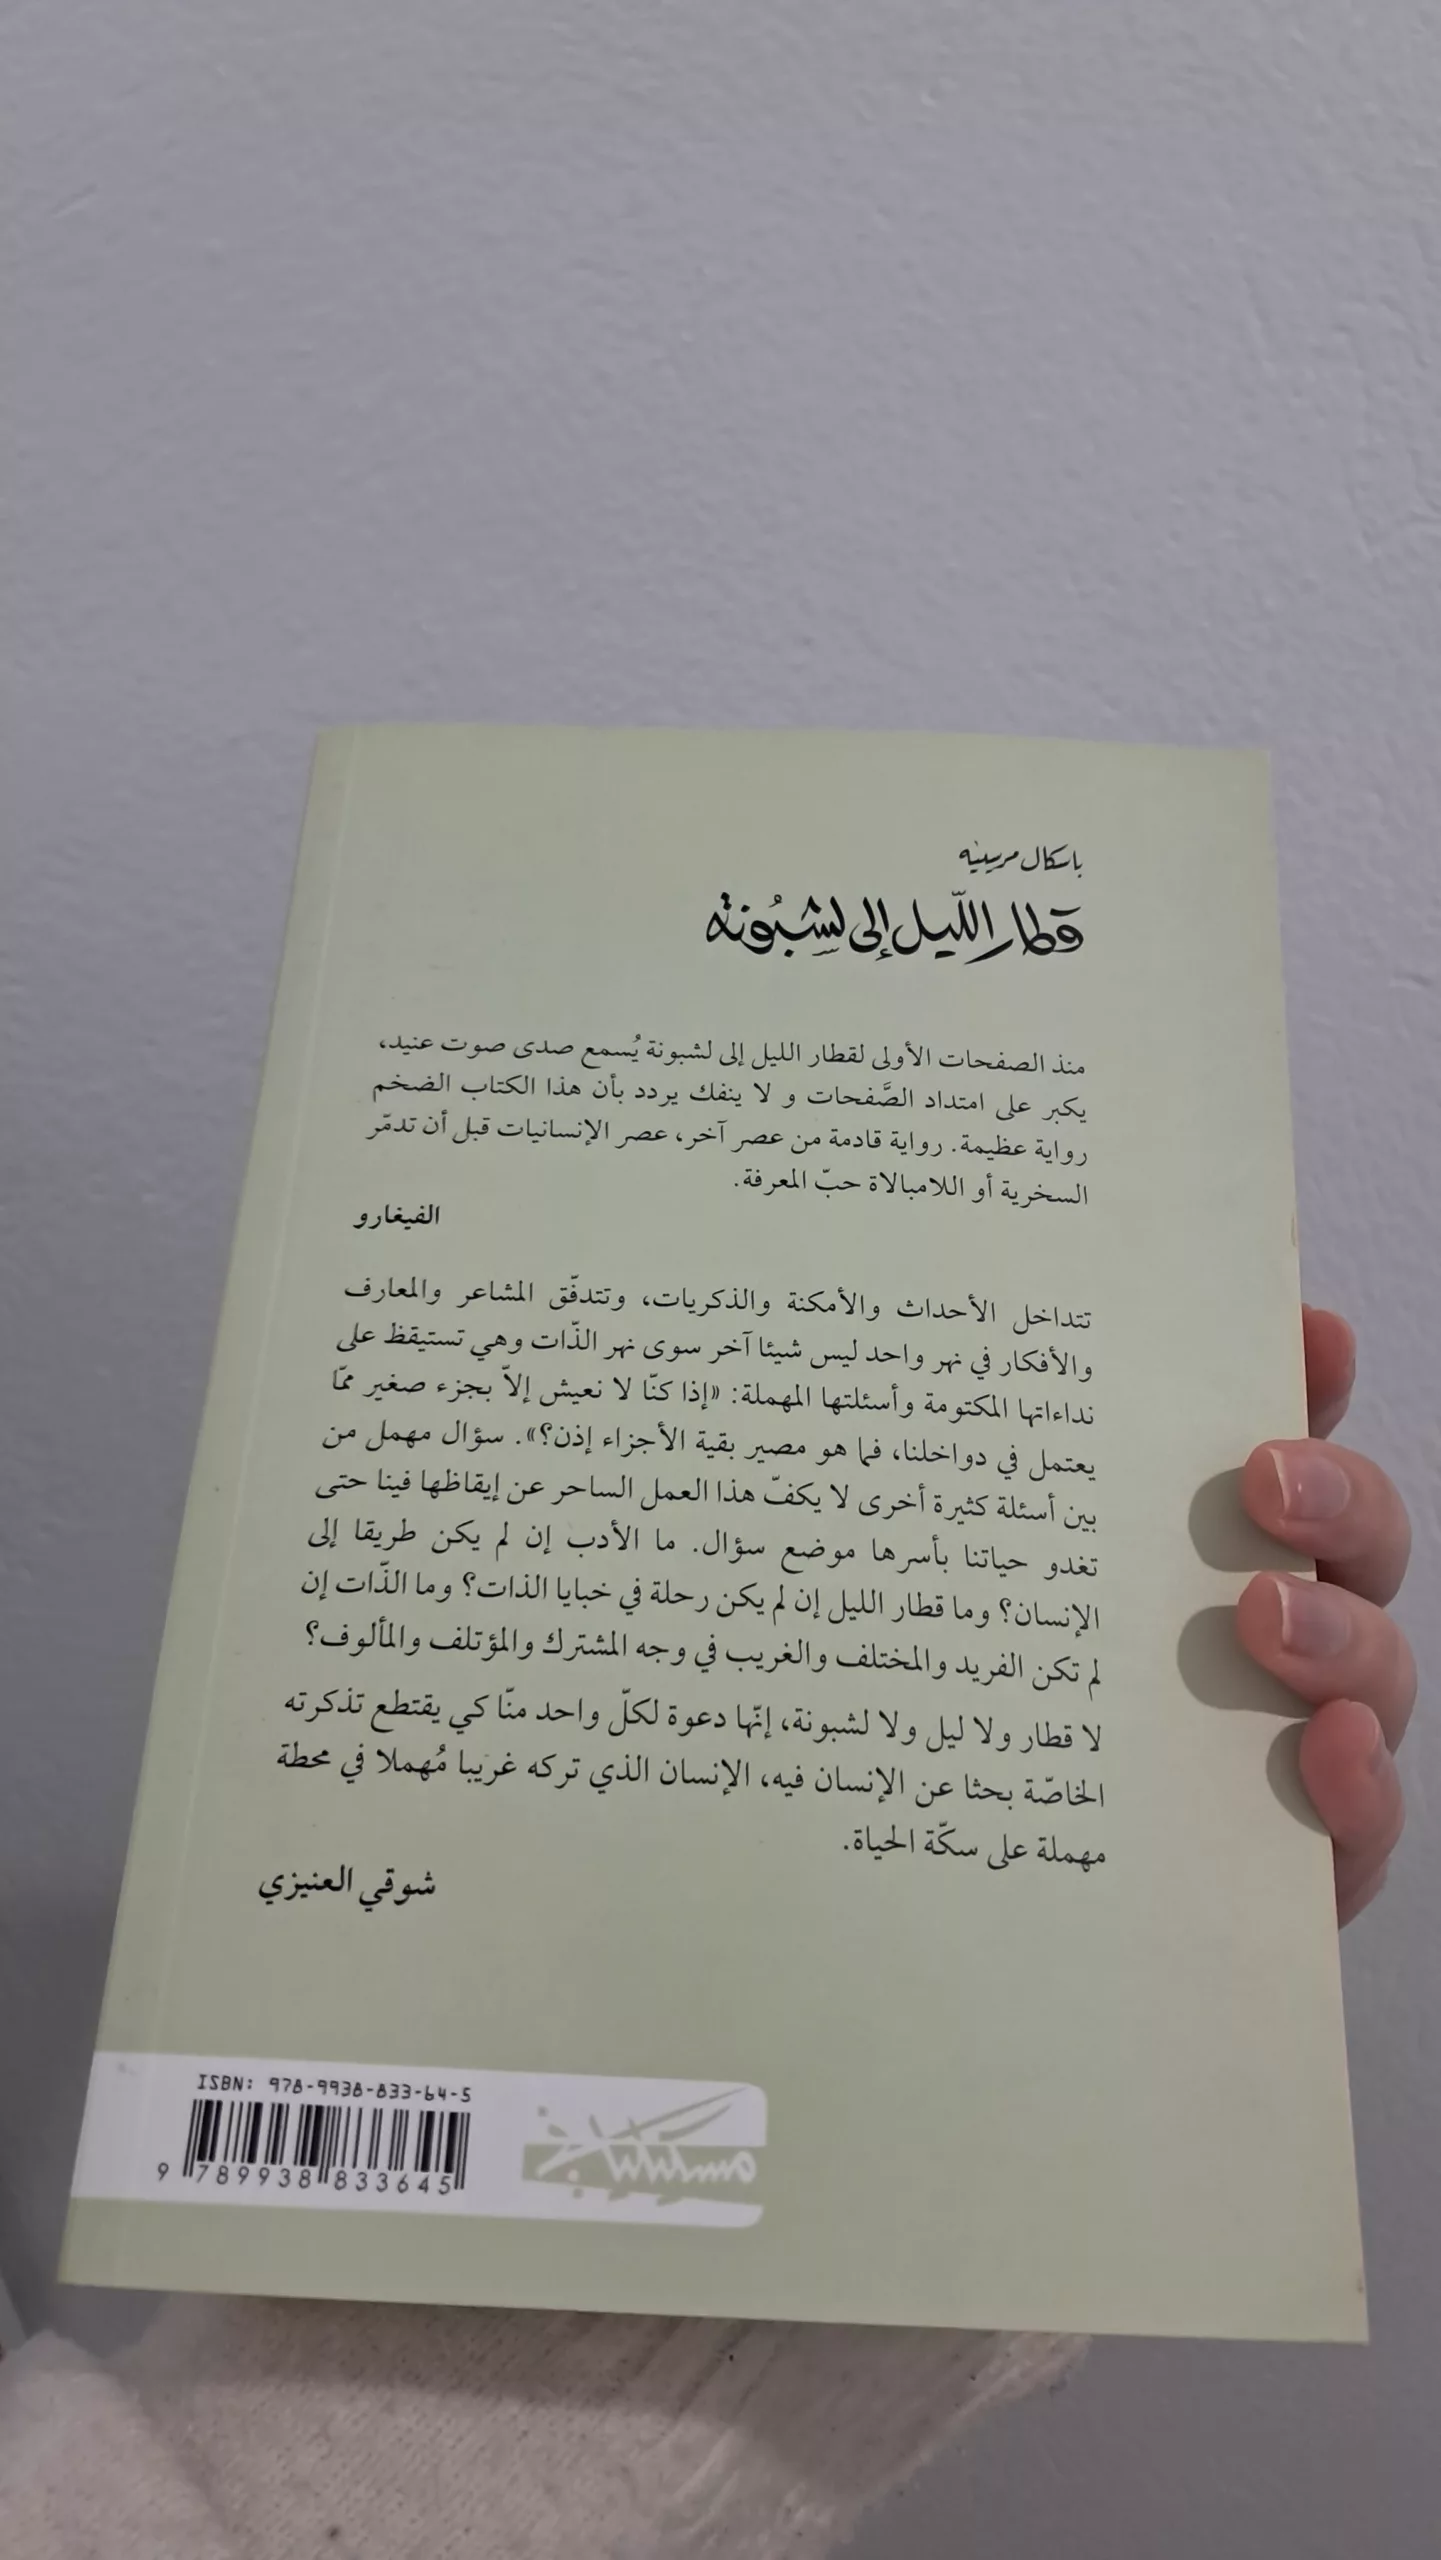 باسكال مرسييه
قطار اللّيل إلى لشبُونة
منذ الصفحات الأولى لقطار الليل إلى لشبونة يُسمع صدى صوت عنيد،
يكبر على امتداد الصَّفحات و لا ينفك يردد بأن هذا الكتاب الضخم
رواية عظيمة. رواية قادمة من عصر آخر، عصر الإنسانيات قبل أن تدمّر
السخرية أو اللامبالاة حبّ المعرفة.
الفيغارو
تتداخل الأحداث والأمكنة والذكريات، وتتدفّق المشاعر والمعارف
والأفكار في نهر واحد ليس شيئا آخر سوى نهر الذّات وهي تستيقظ على
نداءاتها المكتومة وأسئلتها المهملة: «إذا كنّا لا نعيش إلاّ بجزء صغير ممّا
يعتمل في دواخلنا، فما هو مصير بقية الأجزاء إذن؟». سؤال مهمل من
بين أسئلة كثيرة أخرى لا يكفّ هذا العمل الساحر عن إيقاظها فينا حتى
تغدو حياتنا بأسرها موضع سؤال. ما الأدب إن لم يكن طريقا إلى
الإنسان؟ وما قطار الليل إن لم يكن رحلة في خبايا الذات؟ وما الذّات إن
لم تكن الفريد والمختلف والغريب في وجه المشترك والمؤتلف والمألوف؟
لا قطار ولا ليل ولا لشبونة، إنّها دعوة لكلّ واحد منّا كي يقتطع تذكرته
الخاصّة بحثا عن الإنسان فيه، الإنسان الذي تركه غريبا مُهملا في محطة
مهملة على سكّة الحياة.
شوقي العنيزي
ISBN: 978-9938-833-64-5
9 789938 833645
مسكيلياني